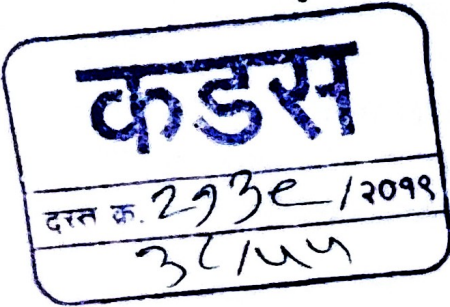 कडस
दस्त क्र. २१३९/२०१९
३८/५५